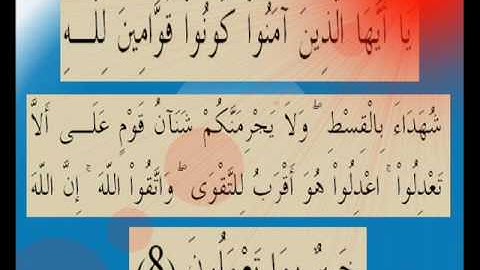 يَا أَيُّهَا الَّذِينَ آمَنُواْ كُونُواْ قَوَّامِينَ لِلّهِ
شُهَدَاءَ بِالْقِسْطِ ۖ وَلاَ يَجْرِمَنَّكُمْ شَنَآنُ قَوْمٍ عَلَى أَلاَّ
تَعْدِلُواْ ۚ اعْدِلُواْ هُوَ أَقْرَبُ لِلتَّقْوَى ۖ وَاتَّقُواْ اللّهَ ۚ إِنَّ اللّهَ
خَبِيرٌ بِمَا تَعْمَلُونَ (8)